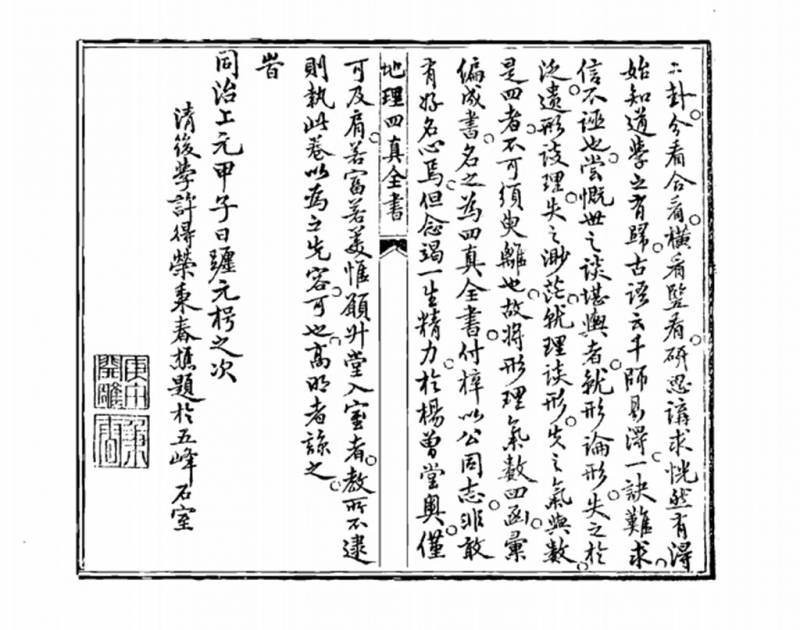 六卦分看合看橫看竪看研思講求恍然有得
始知道學之有歸古語云千師易得一訣難求
信不誣也嘗慨世之談堪輿者就形論形失之於
泛遺形談理失之渺茫就理談形失之氣與數
是四者不可須臾離也故將形理氣數四函彙
偏成書名之為四真全書付梓以公同志非敢
有好名心焉但念竭一生精力於楊曾堂奧僅
地理四真全書
可及肩若富若美惟願升堂入室者教所不逮
則執此卷以為之先容可也高明者諒之
旹
同治上元甲子日躔元枵之次
清後學許得榮東春樵題於五峰石室